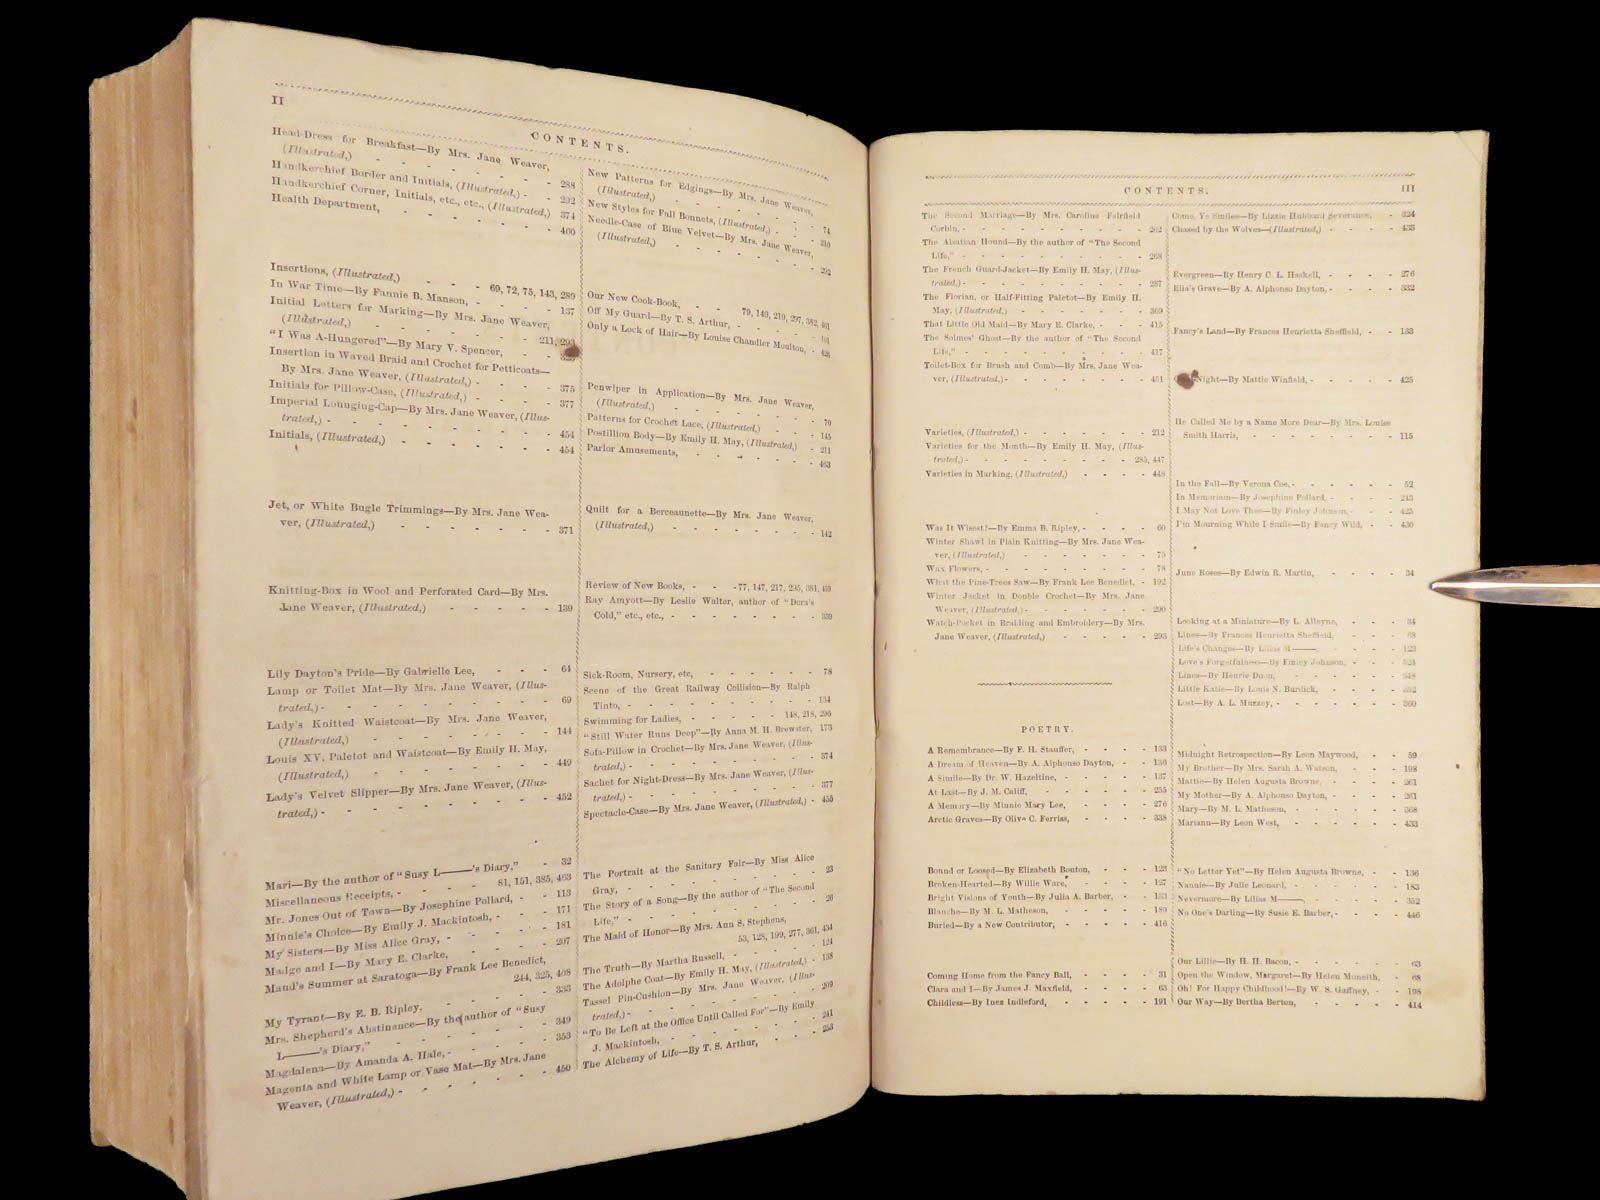 II
CONTENTS.
Head-Dress for Breakfast—By Mrs. Jane Weaver,
(Illustrated,) - - - - - - - 288
Handkerchief Border and Initials, (Illustrated,) - - 292
Handkerchief Corner, Initials, etc., etc., (Illustrated,) 374
Health Department, - - - - - - 460
Insertions, (Illustrated,) - - - 69, 72, 75, 143, 289
In War Time—By Fannie B. Manson, - - - - 137
Initial Letters for Marking—By Mrs. Jane Weaver,
(Illustrated,) - - - - - - 211, 293
"I Was A-Hungered"—By Mary V. Spencer, - -
Insertion in Waved Braid and Crochet for Petticoats—
By Mrs. Jane Weaver, (Illustrated,) - - - - 375
Initials for Pillow-Case, (Illustrated,) - - - - 377
Imperial Lounging-Cap—By Mrs. Jane Weaver, (Illus-
trated,) - - - - - - - - - 454
Initials, (Illustrated,) - - - - - - 454
Jet, or White Bugle Trimmings—By Mrs. Jane Wea-
ver, (Illustrated,) - - - - - - 371
Knitting-Box in Wool and Perforated Card—By Mrs.
Jane Weaver, (Illustrated,) - - - - - 139
Lily Dayton's Pride—By Gabrielle Lee, - - - 64
Lamp or Toilet Mat—By Mrs. Jane Weaver, (Illus-
trated,) - - - - - - - - - 69
Lady's Knitted Waistcoat—By Mrs. Jane Weaver,
(Illustrated,) - - - - - - - 144
Louis XV. Paletot and Waistcoat—By Emily H. May,
(Illustrated,) - - - - - - - 449
Lady's Velvet Slipper—By Mrs. Jane Weaver, (Illus-
trated,) - - - - - - - - - 452
Mari—By the author of "Susy L——'s Diary," - 32
Miscellaneous Receipts, - - - - 81, 151, 385, 463
Mr. Jones Out of Town—By Josephine Pollard, - - 113
Minnie's Choice—By Emily J. Mackintosh, - - - 171
My Sisters—By Miss Alice Gray, - - - - - 181
Madge and I—By Mary E. Clarke, - - - - 207
Maud's Summer at Saratoga—By Frank Lee Benedict,
244, 325, 408
My Tyrant—By E. B. Ripley, - - - - - 333
Mrs. Shepherd's Abstinence—By the author of "Susy
L——'s Diary," - - - - - - - 349
Magdalena—By Amanda A. Hale, - - - - - 353
Magenta and White Lamp or Vase Mat—By Mrs. Jane
Weaver, (Illustrated,) - - - - - - 450
New Patterns for Edgings—By Mrs. Jane Weaver,
(Illustrated,) - - - - - - - 74
New Styles for Fall Bonnets, (Illustrated,) - - - 210
Needle-Case of Blue Velvet—By Mrs. Jane Weaver,
(Illustrated,) - - - - - - - 292
Our New Cook-Book, - - 79, 149, 219, 297, 382, 461
Off My Guard—By T. S. Arthur, - - - - 101
Only a Lock of Hair—By Louise Chandler Moulton, - 426
Penwiper in Application—By Mrs. Jane Weaver,
(Illustrated,) - - - - - - - 70
Patterns for Crochet Lace, (Illustrated,) - - - 145
Postillion Body—By Emily H. May, (Illustrated,) - 211
Parlor Amusements, - - - - - - - 463
Quilt for a Berceaunette—By Mrs. Jane Weaver,
(Illustrated,) - - - - - - - - 142
Review of New Books, - - - 77, 147, 217, 295, 381, 459
Ray Amyott—By Leslie Walter, author of "Dora's
Cold," etc., etc., - - - - - - - - 339
Sick-Room, Nursery, etc, - - - - - - 78
Scene of the Great Railway Collision—By Ralph
Tinto, - - - - - - - - - 134
Swimming for Ladies, - - - - - 148, 218, 296
"Still Water Runs Deep"—By Anna M. H. Brewster, 173
Sofa-Pillow in Crochet—By Mrs. Jane Weaver, (Illus-
trated,) - - - - - - - - - 374
Sachet for Night-Dress—By Mrs. Jane Weaver, (Illus-
trated,) - - - - - - - - - 377
Spectacle-Case—By Mrs. Jane Weaver, (Illustrated,) - 455
The Portrait at the Sanitary Fair—By Miss Alice
Gray, - - - - - - - - - 23
The Story of a Song—By the author of "The Second
Life," - - - - - - - - - 26
The Maid of Honor—By Mrs. Ann S. Stephens,
53, 128, 199, 277, 361, 434
The Truth—By Martha Russell, - - - - - 124
The Adolphe Coat—By Emily H. May, (Illustrated,) - 138
Tassel Pin-Cushion—By Mrs. Jane Weaver, (Illus-
trated,) - - - - - - - - - 209
"To Be Left at the Office Until Called For"—By Emily
J. Mackintosh, - - - - - - - - 241
The Alchemy of Life—By T. S. Arthur, - - - 253
CONTENTS.
III
The Second Marriage—By Mrs. Caroline Fairfield
Corbin, - - - - - - - - - - 262
The Alsatian Hound—By the author of "The Second
Life," - - - - - - - - - - 268
The French Guard-Jacket—By Emily H. May, (Illus-
trated,) - - - - - - - - - 287
The Florian, or Half-Fitting Paletot—By Emily H.
May, (Illustrated,) - - - - - - - 369
That Little Old Maid—By Mary E. Clarke, - - - 415
The Solmes' Ghost—By the author of "The Second
Life," - - - - - - - - - - 417
Toilet-Box for Brush and Comb—By Mrs. Jane Wea-
ver, (Illustrated,) - - - - - - - 451
Varieties, (Illustrated,) - - - - - - - 212
Varieties for the Month—By Emily H. May, (Illus-
trated,) - - - - - - - - - 285, 447
Varieties in Marking, (Illustrated,) - - - - 448
Was It Wisest?—By Emma B. Ripley, - - - - 60
Winter Shawl in Plain Knitting—By Mrs. Jane Wea-
ver, (Illustrated,) - - - - - - - 75
Wax Flowers, - - - - - - - - - 78
What the Pine-Trees Saw—By Frank Lee Benedict, - 192
Winter Jacket in Double Crochet—By Mrs. Jane
Weaver, (Illustrated,) - - - - - - - 290
Watch-Pocket in Braiding and Embroidery—By Mrs.
Jane Weaver, (Illustrated,) - - - - - 293
POETRY.
A Remembrance—By F. H. Stauffer, - - - - 133
A Dream of Heaven—By A. Alphonso Dayton, - - 136
A Simile—By Dr. W. Hazeltine, - - - - - 137
At Last—By J. M. Califf, - - - - - 255
A Memory—By Minnie Mary Lee, - - - - 276
Arctic Graves—By Olive C. Ferriss, - - - - 338
Bound or Loosed—By Elizabeth Bouton, - - - 123
Broken-Hearted—By Willie Ware, - - - - 127
Bright Visions of Youth—By Julia A. Barber, - - 133
Blanche—By M. L. Matheson, - - - - - 180
Buried—By a New Contributor, - - - - - 416
Coming Home from the Fancy Ball, - - - - 31
Clara and I—By James J. Maxfield, - - - - 63
Childless—By Inez Indleford, - - - - - 191
Come, Ye Smiles—By Lizzie Hubbard Severance, - 324
Chased by the Wolves—(Illustrated,) - - - - 433
Evergreen—By Henry C. L. Haskell, - - - - 276
Ella's Grave—By A. Alphonso Dayton, - - - - 332
Fancy's Land—By Frances Henrietta Sheffield, - - 133
Night—By Mattie Winfield, - - - - - 425
He Called Me by a Name More Dear—By Mrs. Louise
Smith Harris, - - - - - - - - - 115
In the Fall—By Verona Coe, - - - - - - 52
In Memoriam—By Josephine Pollard, - - - - 243
I May Not Love Thee—By Finley Johnson, - - - 425
I'm Mourning While I Smile—By Fancy Wild, - - 430
June Roses—By Edwin R. Martin, - - - - 34
Looking at a Miniature—By L. Alleyne, - - - 34
Lines—By Frances Henrietta Sheffield, - - - 68
Life's Changes—By Lilias M——, - - - - 123
Love's Forgetfulness—By Finley Johnson, - - - 324
Lines—By Henrie Dunn, - - - - - 348
Little Katie—By Louis N. Burdick, - - - - 352
Lost—By A. L. Muzzey, - - - - - - - 360
Midnight Retrospection—By Leon Maywood, - - 59
My Brother—By Mrs. Sarah A. Watson, - - - 198
Mattie—By Helen Augusta Browne, - - - - 261
My Mother—By A. Alphonso Dayton, - - - - 261
Mary—By M. L. Matheson, - - - - - - 368
Mariann—By Leon West, - - - - - - 433
"No Letter Yet"—By Helen Augusta Browne, - - 136
Nannie—By Julie Leonard, - - - - - - 183
Nevermore—By Lilias M——, - - - - - 352
No One's Darling—By Susie E. Barber, - - - - 446
Our Lillie—By H. H. Bacon, - - - - - - 63
Open the Window, Margaret—By Helen Monteith, - - 68
Oh! For Happy Childhood!—By W. S. Gaffney, - - 198
Our Way—By Bertha Berton, - - - - - 414